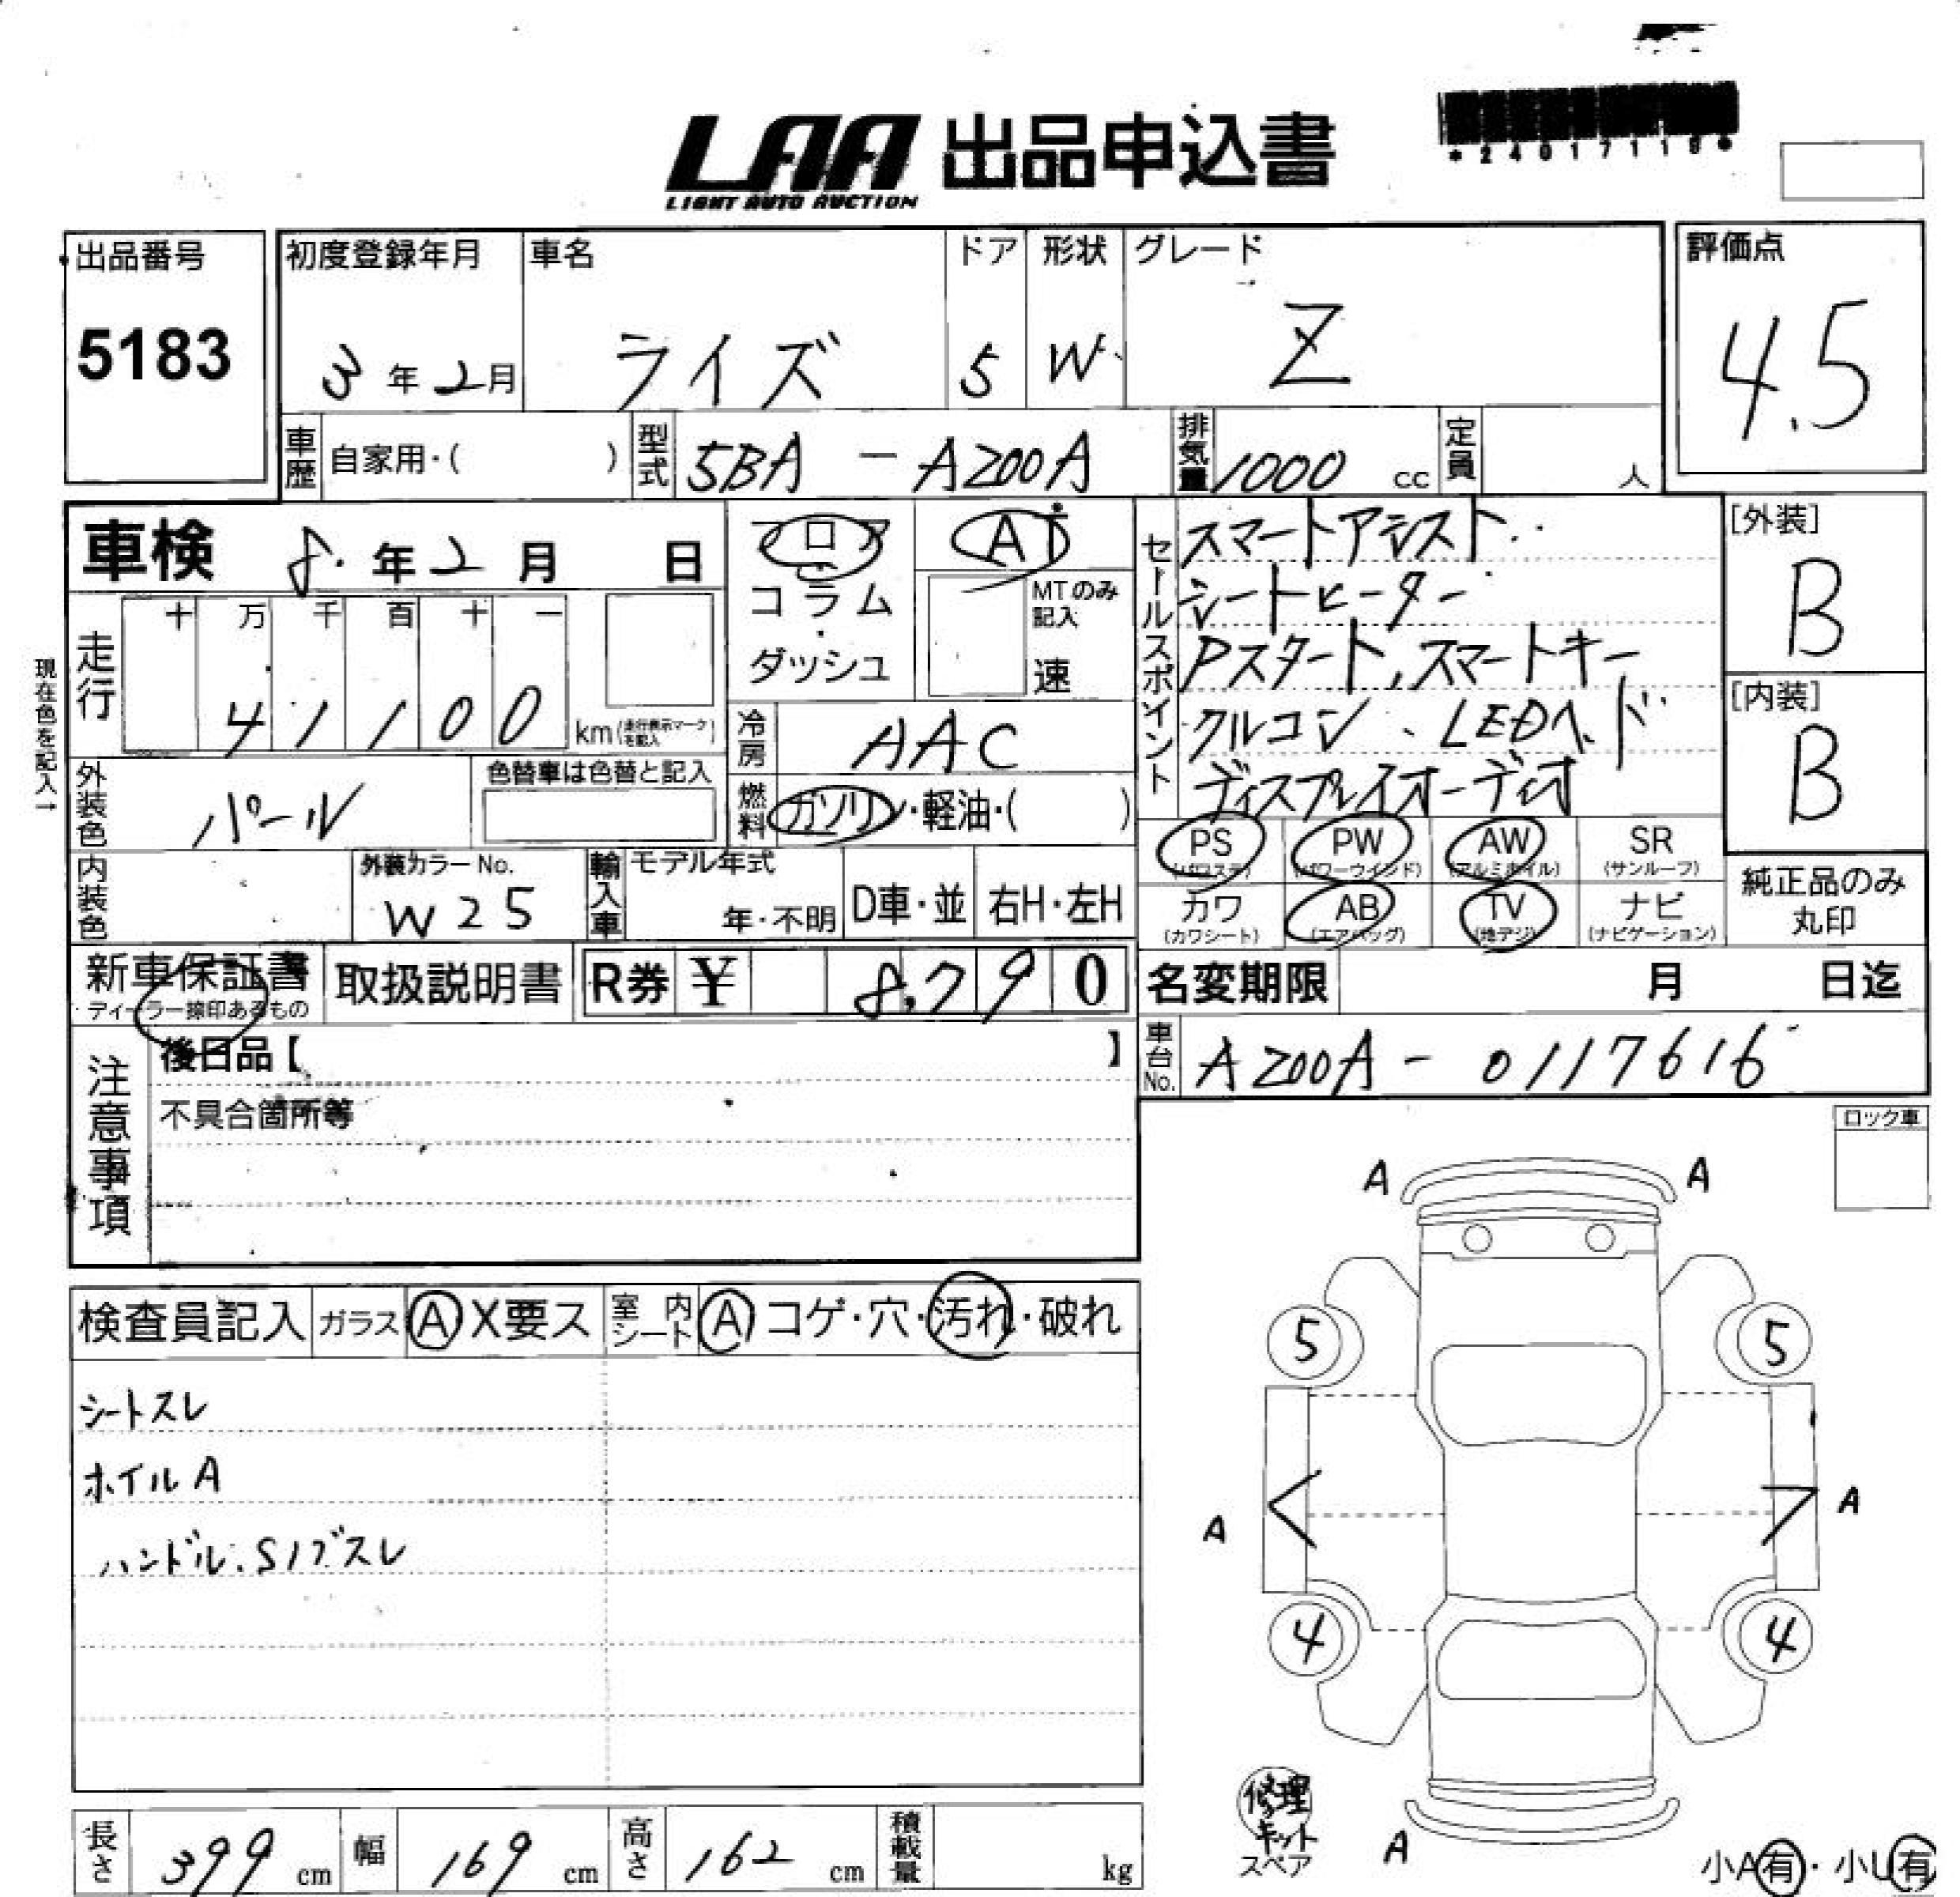 LAA 出品申込書
LIGHT AUTO AUCTION
*24017119*
出品番号
5183
初度登録年月
3年2月
車名
ライズ
ドア
5
形状
W
グレード
Z
評価点
4.5
車歴 自家用・( )
型式 5BA - A200A
排気量 1000 cc
定員 人
車検 8年2月 日
フロア
コラム
・
ダッシュ
AT
MTのみ記入
速
セールスポイント
スマートアシスト
シートヒーター
Pスタート、スマートキー
クルコン、LEDヘッド
ディスプレイオーディオ
[外装]
B
[内装]
B
現在色を記入→
走行
十 万 千 百 十 一
4 1 1 0 0
km(走行表示マークを記入)
冷房 AAC
外装色 パール
色替車は色替と記入
燃料 ガソリン・軽油・( )
PS (パワステ)
PW (パワーウインド)
AW (アルミホイル)
SR (サンルーフ)
カワ (カワシート)
AB (エアバッグ)
TV (地デジ)
ナビ (ナビゲーション)
純正品のみ
丸印
内装色
外装カラーNo.
W25
輸入車
モデル年式
年・不明
D車・並
右H・左H
新車保証書
ディーラー捺印あるもの
取扱説明書
R券 ¥ 8,790
名変期限 月 日迄
車台No. A200A - 0117616
注意事項
後日品【 】
不具合箇所等
ロック車
検査員記入
ガラス A X要ス
室内シート A コゲ・穴・汚れ・破れ
シートスレ
ホイルA
ハンドル.S/ブスレ
A A
5 5
A A
4 4
A
修理
キット
スペア
小A有・小U有
長さ 399 cm
幅 169 cm
高さ 162 cm
積載量 kg